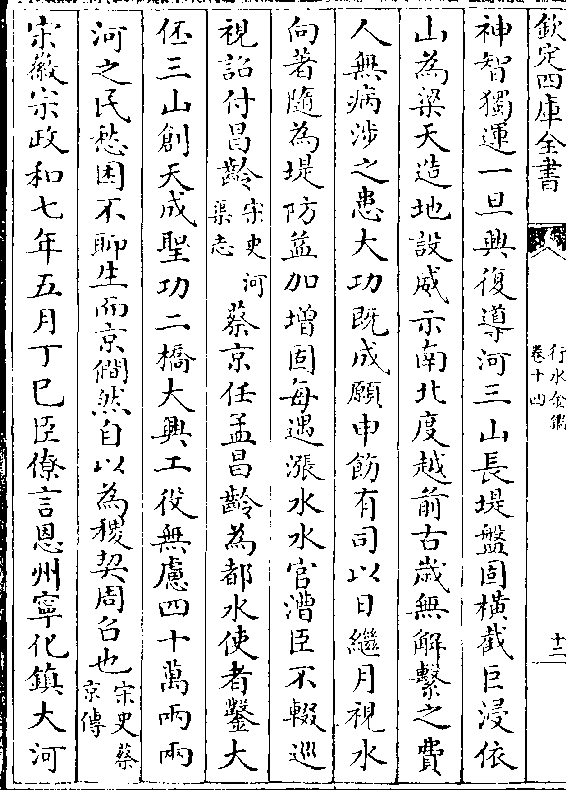 欽定四庫全書
行水金鑑
卷十四
十三
神智獨運一旦興復導河三山長堤盤固横截巨浸依
山為梁天造地設威示南北度越前古歲無解繫之費
人無病涉之患大功既成願申飭有司以日繼月視水
向著隨為堤防益加增固每遇漲水水官漕臣不輟巡
視詔付昌齡宋史河渠志蔡京任孟昌齡為都水使者鑿大
伾三山創天成聖功二橋大興工役無慮四十萬兩兩
河之民愁困不聊生而京僴然自以為稷契周召也宋史蔡京傳
宋徽宗政和七年五月丁巳臣僚言恩州寧化鎮大河